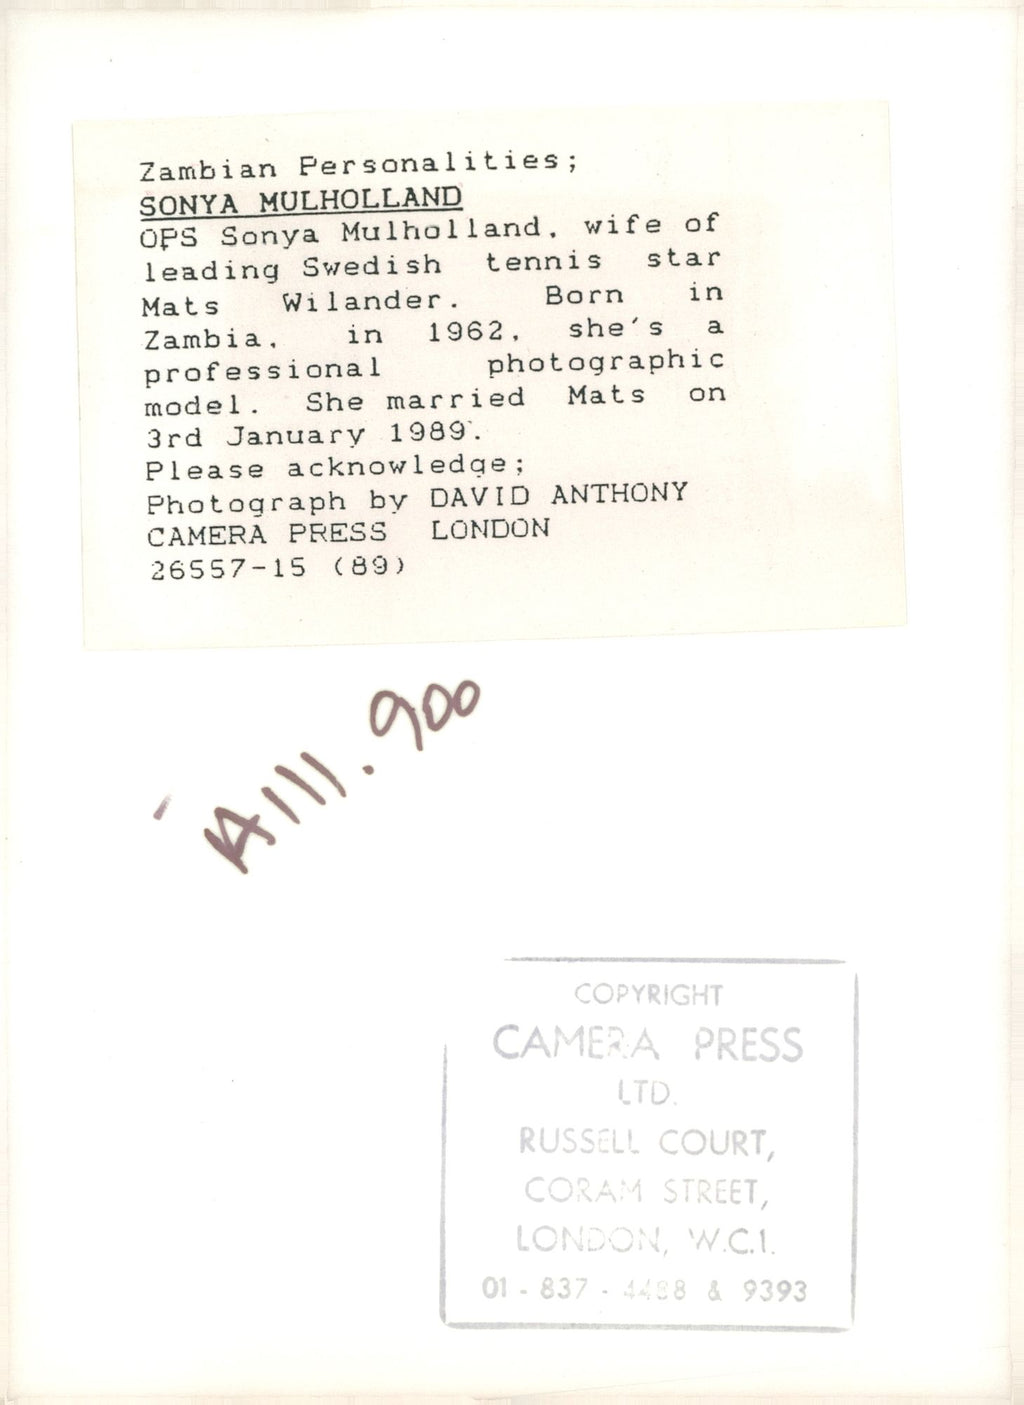 Zambian Personalities;
SONYA MULHOLLAND
OPS Sonya Mulholland, wife of
leading Swedish tennis star
Mats Wilander. Born in
Zambia, in 1962, she's a
professional photographic
model. She married Mats on
3rd January 1989.
Please acknowledge;
Photograph by DAVID ANTHONY
CAMERA PRESS LONDON
26557-15 (89)
A111.900
COPYRIGHT
CAMERA PRESS
LTD.
RUSSELL COURT,
CORAM STREET,
LONDON, W.C.1.
01 - 837 - 4488 & 9393